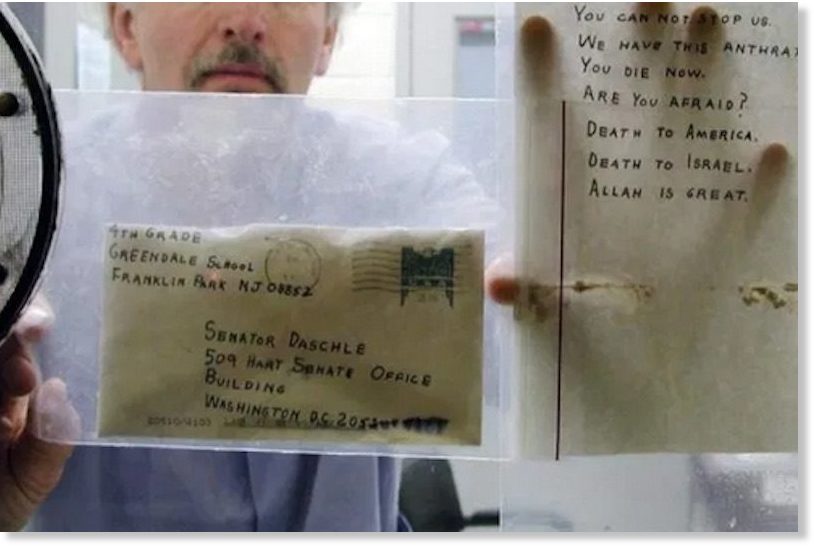 4TH GRADE
GREENDALE SCHOOL
FRANKLIN PARK NJ 08852
SENATOR DASCHLE
509 HART SENATE OFFICE
BUILDING
WASHINGTON D.C. 205
20510/4103
YOU CAN NOT STOP US.
WE HAVE THIS ANTHRA
YOU DIE NOW.
ARE YOU AFRAID?
DEATH TO AMERICA.
DEATH TO ISRAEL.
ALLAH IS GREAT.